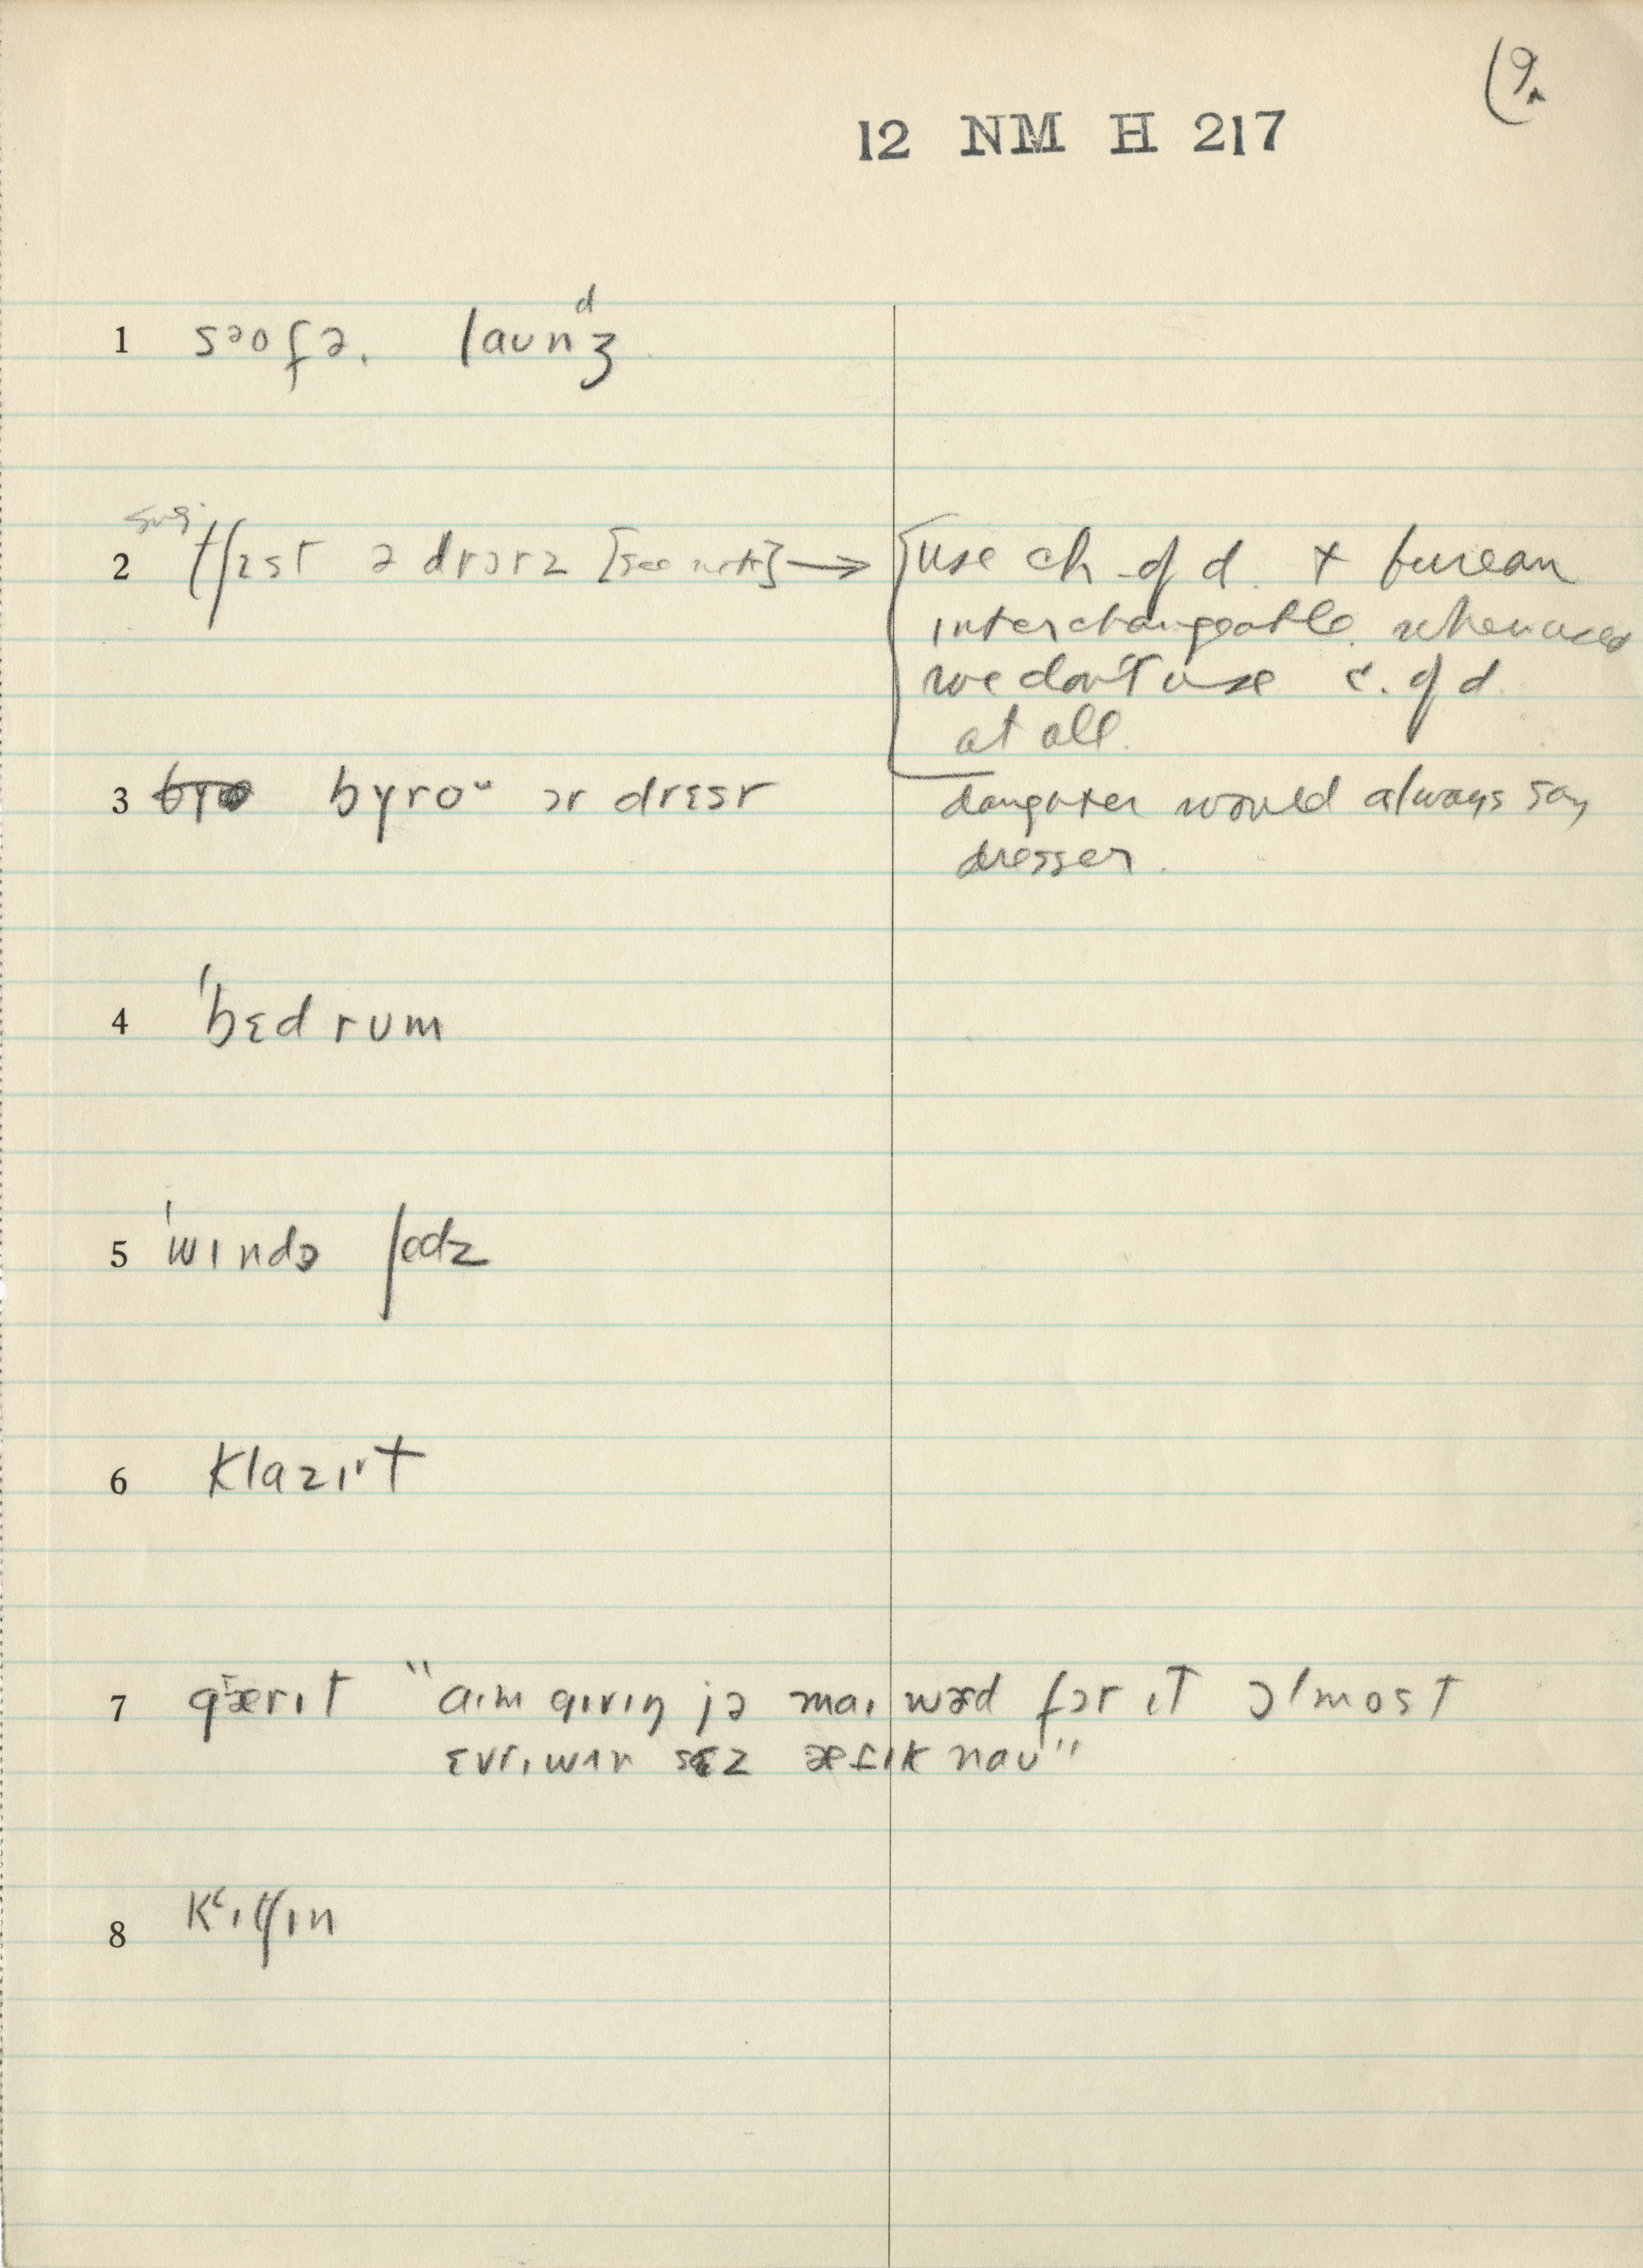 (9.
12 NM H 217
1 səofə. laundʒ
2 sug. tʃɛst ə drɔrz [see note] → [use ch of d. + bureau
interchangeable. when used
we don't use c. of d.
at all.
3 byroᵘ ɔr drɛsr daughter would always say
dresser.
4 ˈbɛdrum
5 ˈwɪndə ʃedz
6 klazɪt
7 gærɪt "aɪm gɪvɪŋ jə maɪ wərd fɔr ɪt ɔlmost
ɛvrɪwʌn sɛz ætɪk nau"
8 kʻɪtʃɪn